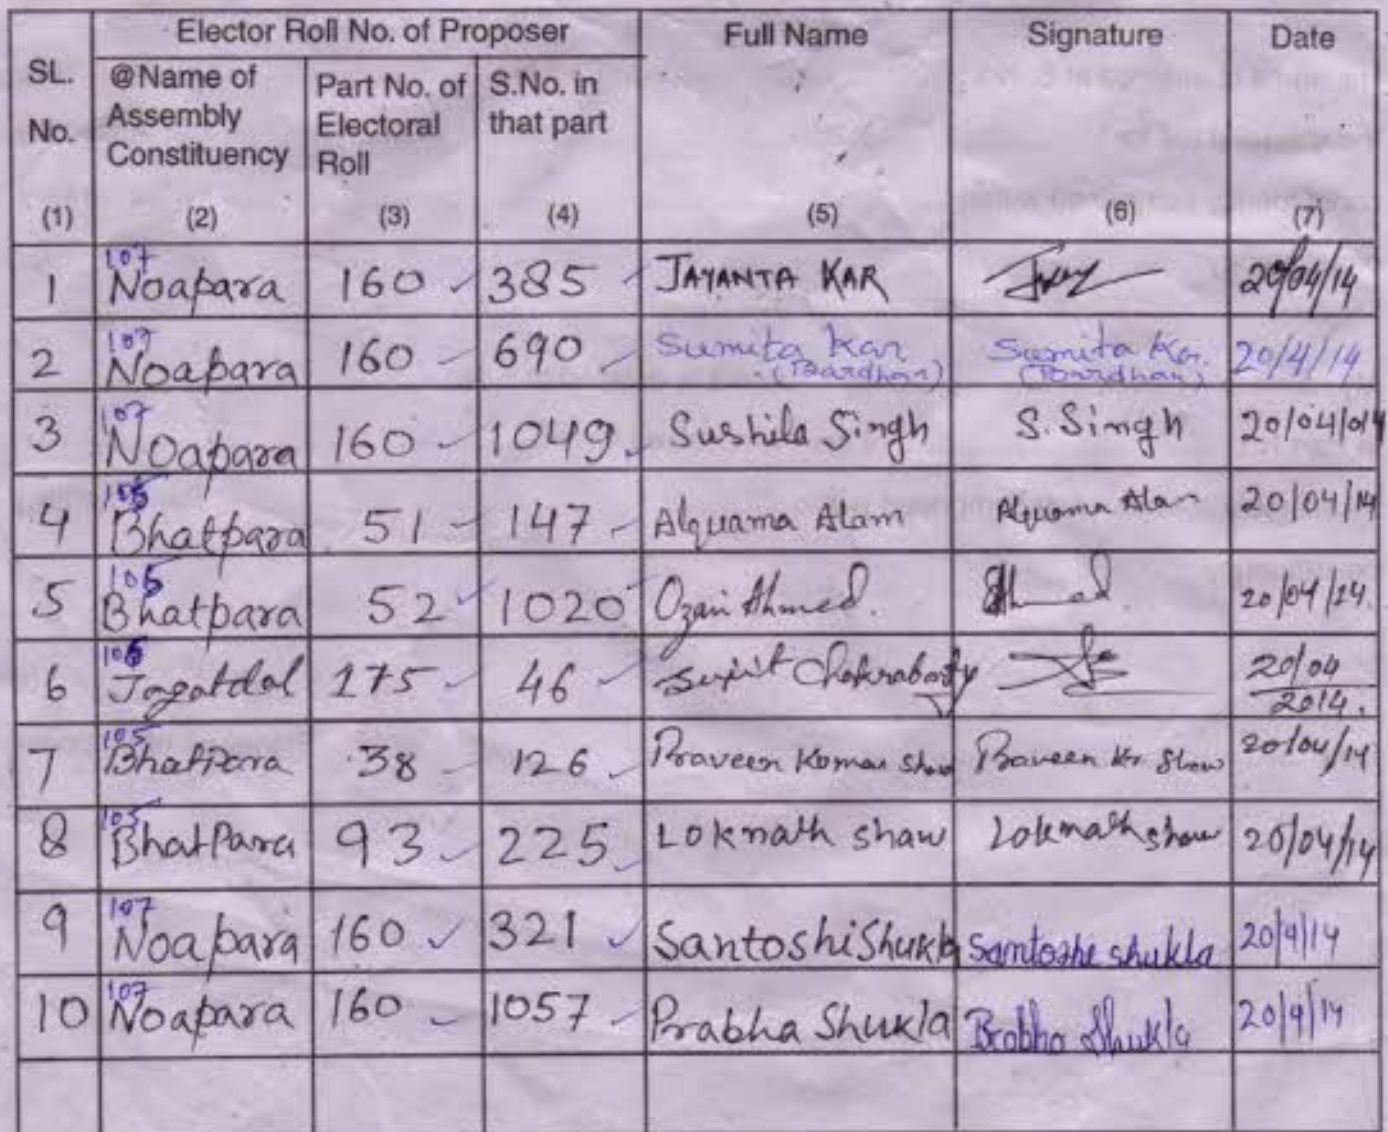 Elector Roll No. of Proposer Full Name Signature Date
SL. No. @Name of Assembly Constituency Part No. of Electoral Roll S.No. in that part
(1) (2) (3) (4) (5) (6) (7)
1 107 Noapara 160 385 JAYANTA KAR 20/04/14
2 107 Noapara 160 690 Sumita Kar (Bardhan) Sumita Kar (Bardhan) 20/4/14
3 107 Noapara 160 1049 Sushila Singh S. Singh 20/04/014
4 105 Bhatpara 51 147 Alquama Alam Alquama Alam 20/04/14
5 105 Bhatpara 52 1020 Ozair Ahmed. Ahmed 20/04/14.
6 106 Jagatdal 175 46 Surjit Chakraborty 20/04 2014.
7 105 BhatPara 38 126 Praveen Kumar Shaw Praveen Kr. Shaw 20/04/14
8 105 BhatPara 93 225 Loknath shaw Loknath shaw 20/04/14
9 107 Noapara 160 321 Santoshi Shukla Santoshi shukla 20/4/14
10 107 Noapara 160 1057 Prabha Shukla Prabha Shukla 20/4/14